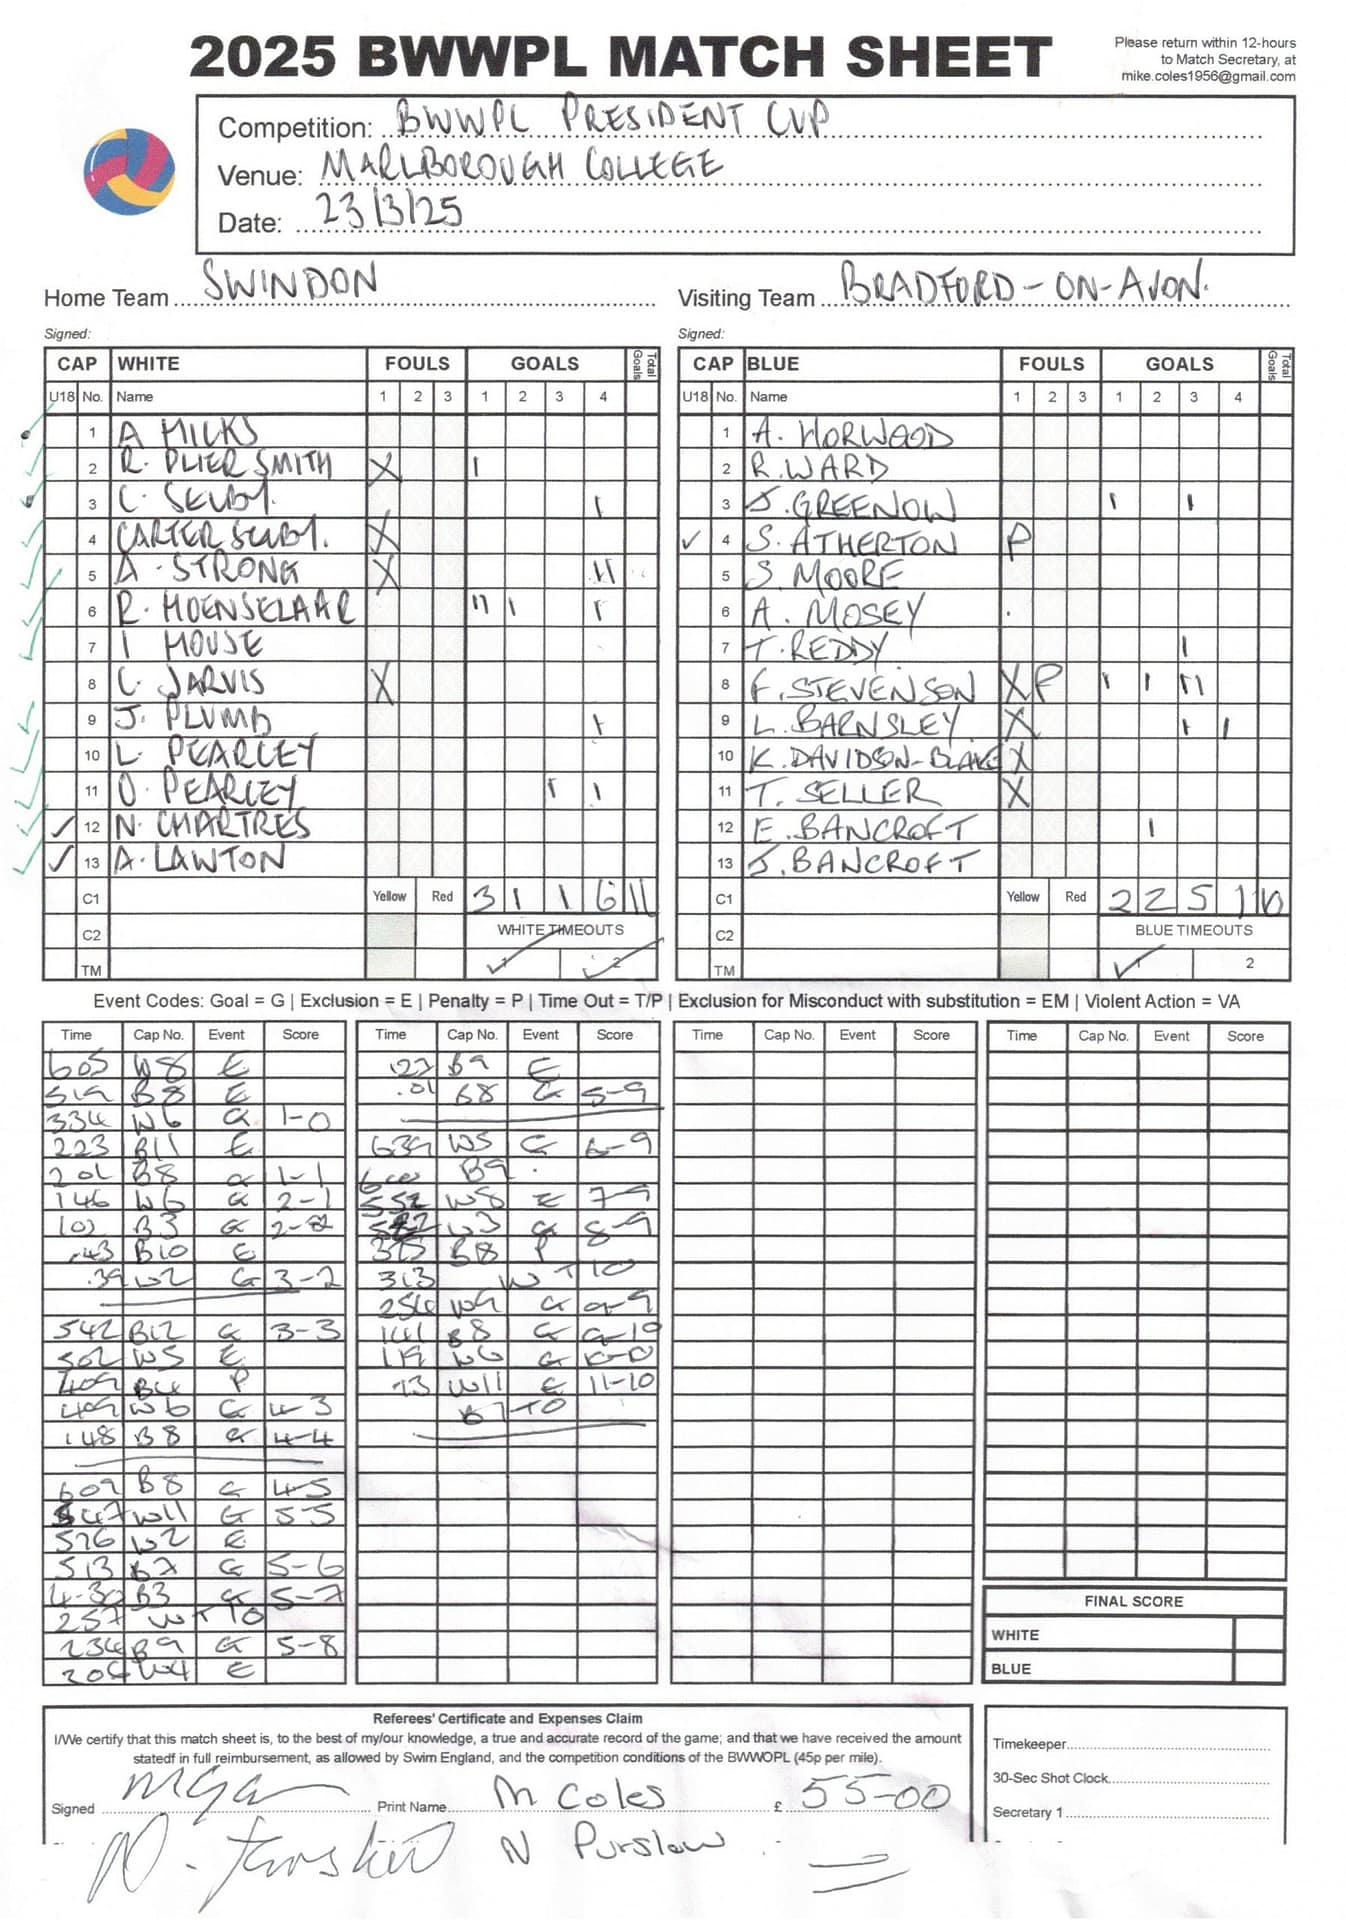 2025 BWWPL MATCH SHEET
Please return within 12-hours
to Match Secretary, at
mike.coles1956@gmail.com
Competition: BWWPL PRESIDENT CUP
Venue: MARLBOROUGH COLLEGE
Date: 23/3/25
Home Team SWINDON
Visiting Team BRADFORD-ON-AVON.
Signed:
Signed:
CAP WHITE FOULS GOALS Total Goals
U18 No. Name 1 2 3 1 2 3 4
1 A MILKS
2 R. PLIER SMITH X I
3 C. SELBY. I
4 CARTER SELBY. X
5 A. STRONG X II
6 R. HOENSELAAR II I I
7 I HOUSE
8 C. JARVIS X
9 J. PLUMB I
10 L. PEARCEY
11 O. PEARCEY I I
✓ 12 N. CHARTRES
✓ 13 A. LAWTON
C1 Yellow Red 3 1 1 6 11
C2 WHITE TIMEOUTS
TM 1 2
CAP BLUE FOULS GOALS Total Goals
U18 No. Name 1 2 3 1 2 3 4
1 A. HORWOOD
2 R. WARD
3 J. GREENOW I I
✓ 4 S. ATHERTON P
5 S. MOORE
6 A. MOSEY
7 T. REDDY I
8 F. STEVENSON X P I I II
9 L. BARNSLEY X I I
10 K. DAVIDSON-BLAKE X
11 T. SELLER X
12 E. BANCROFT I
13 J. BANCROFT
C1 Yellow Red 2 2 5 1 10
C2 BLUE TIMEOUTS
TM 1 2
Event Codes: Goal = G | Exclusion = E | Penalty = P | Time Out = T/P | Exclusion for Misconduct with substitution = EM | Violent Action = VA
Time Cap No. Event Score
605 W8 E
519 B8 E
334 W6 G 1-0
223 B11 E
201 B8 G 1-1
146 W6 G 2-1
103 B3 G 2-2
.43 B10 E
.39 W2 G 3-2
542 B12 G 3-3
502 W5 E
409 B4 P
409 W6 G 4-3
148 B8 G 4-4
609 B8 G 4-5
547 W11 G 5-5
526 W2 E
513 B7 G 5-6
4-30 B3 G 5-7
257 W T/O
234 B9 G 5-8
206 W4 E
Time Cap No. Event Score
.27 B9 E
.01 B8 G 5-9
639 W5 G 6-9
B9
552 W8 E 7-9
W3 G 8-9
315 B8 P
313 W T/O
254 W9 G 9-9
141 B8 G 9-10
119 W6 G 10-10
.13 W11 G 11-10
B T/O
Time Cap No. Event Score
Time Cap No. Event Score
FINAL SCORE
WHITE
BLUE
Referees' Certificate and Expenses Claim
I/We certify that this match sheet is, to the best of my/our knowledge, a true and accurate record of the game; and that we have received the amount
statedf in full reimbursement, as allowed by Swim England, and the competition conditions of the BWWOPL (45p per mile).
Signed Print Name M Coles £ 55-00
N Purslow
Timekeeper
30-Sec Shot Clock
Secretary 1